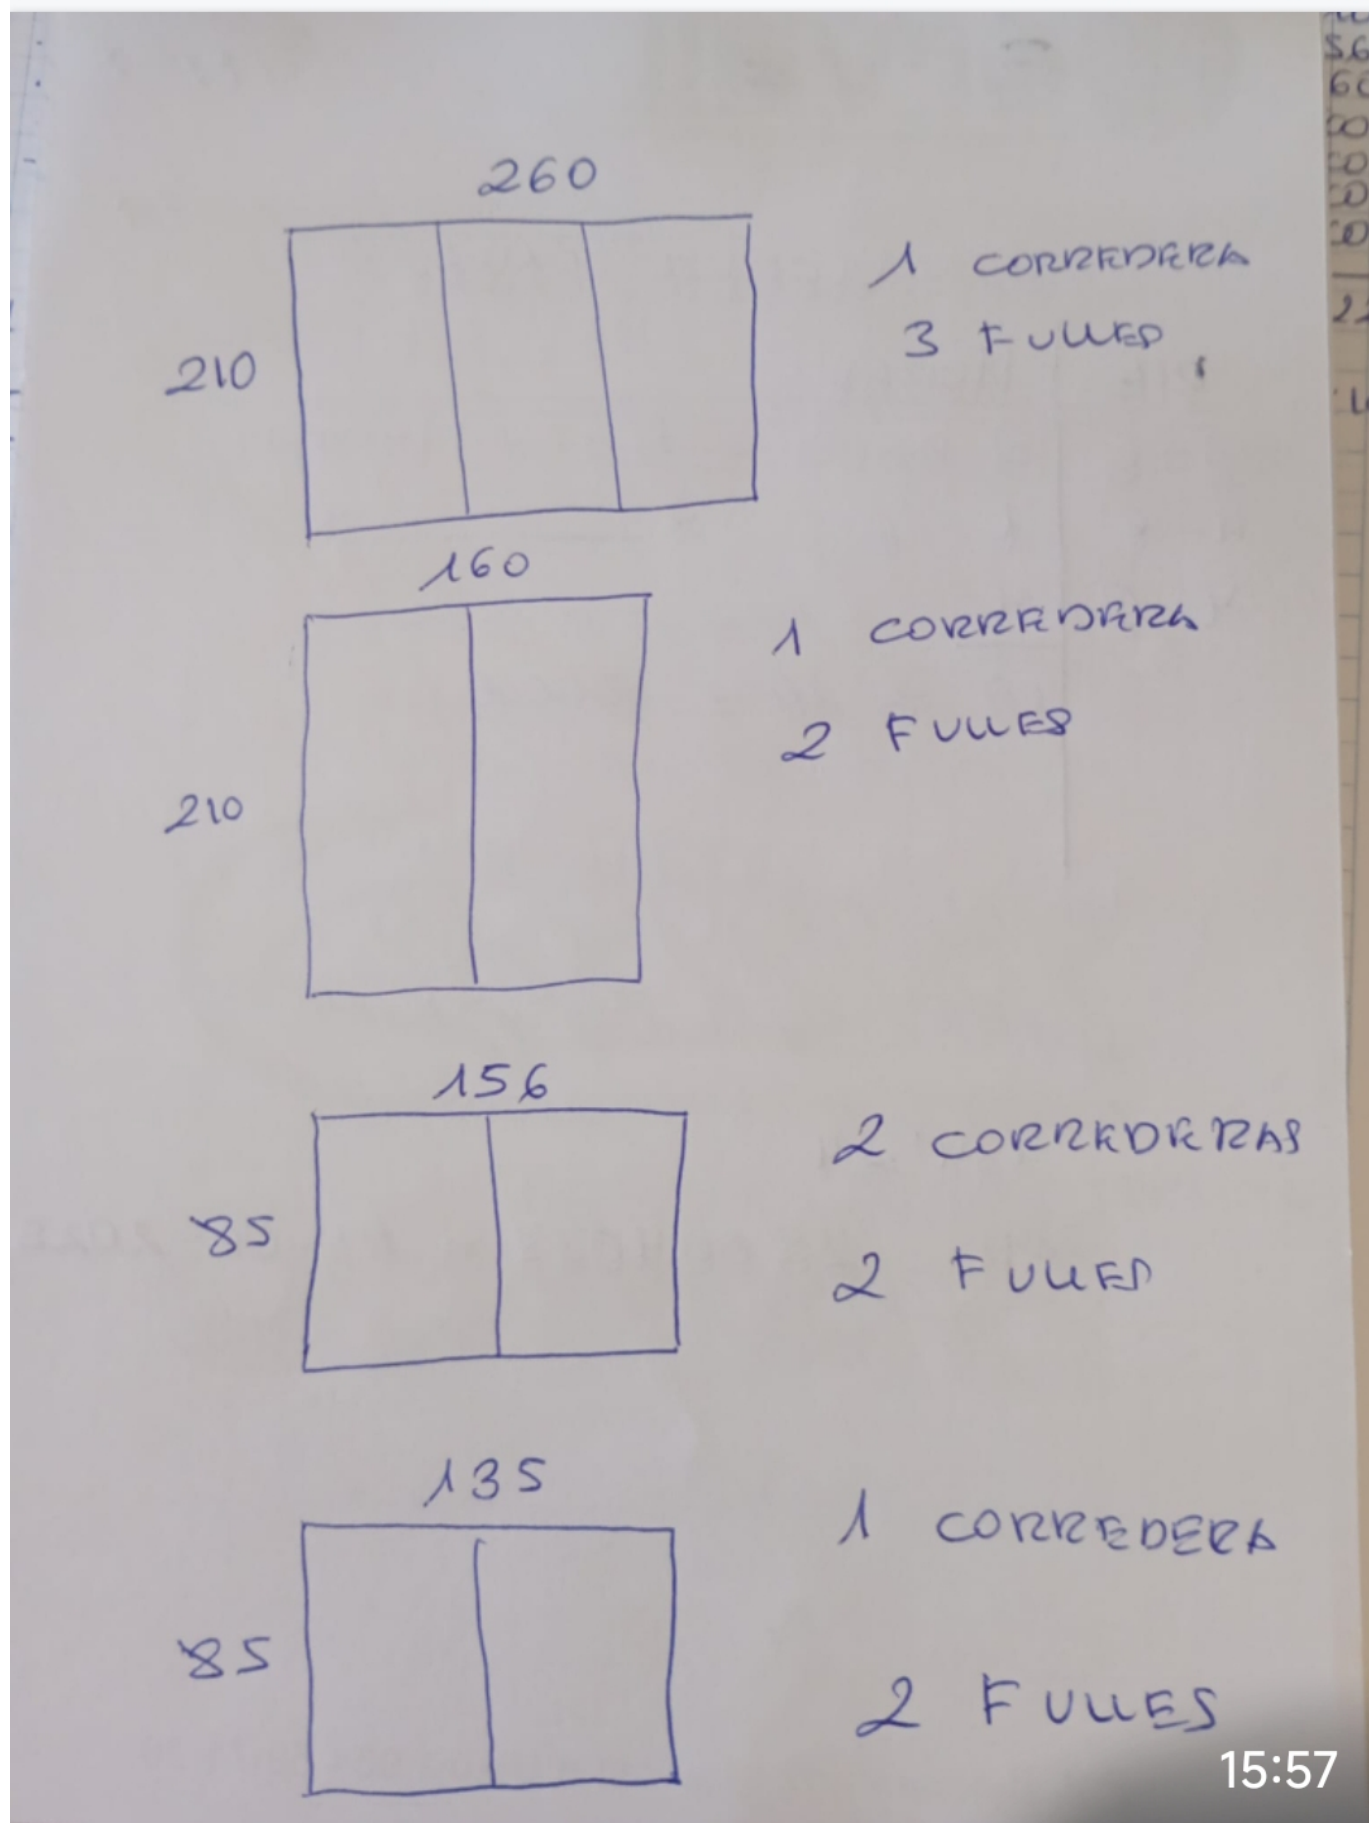 260
210
1 CORREDERA
3 FULLES
160
210
1 CORREDERA
2 FULLES
156
85
2 CORREDERAS
2 FULLES
135
85
1 CORREDERA
2 FULLES
15:57